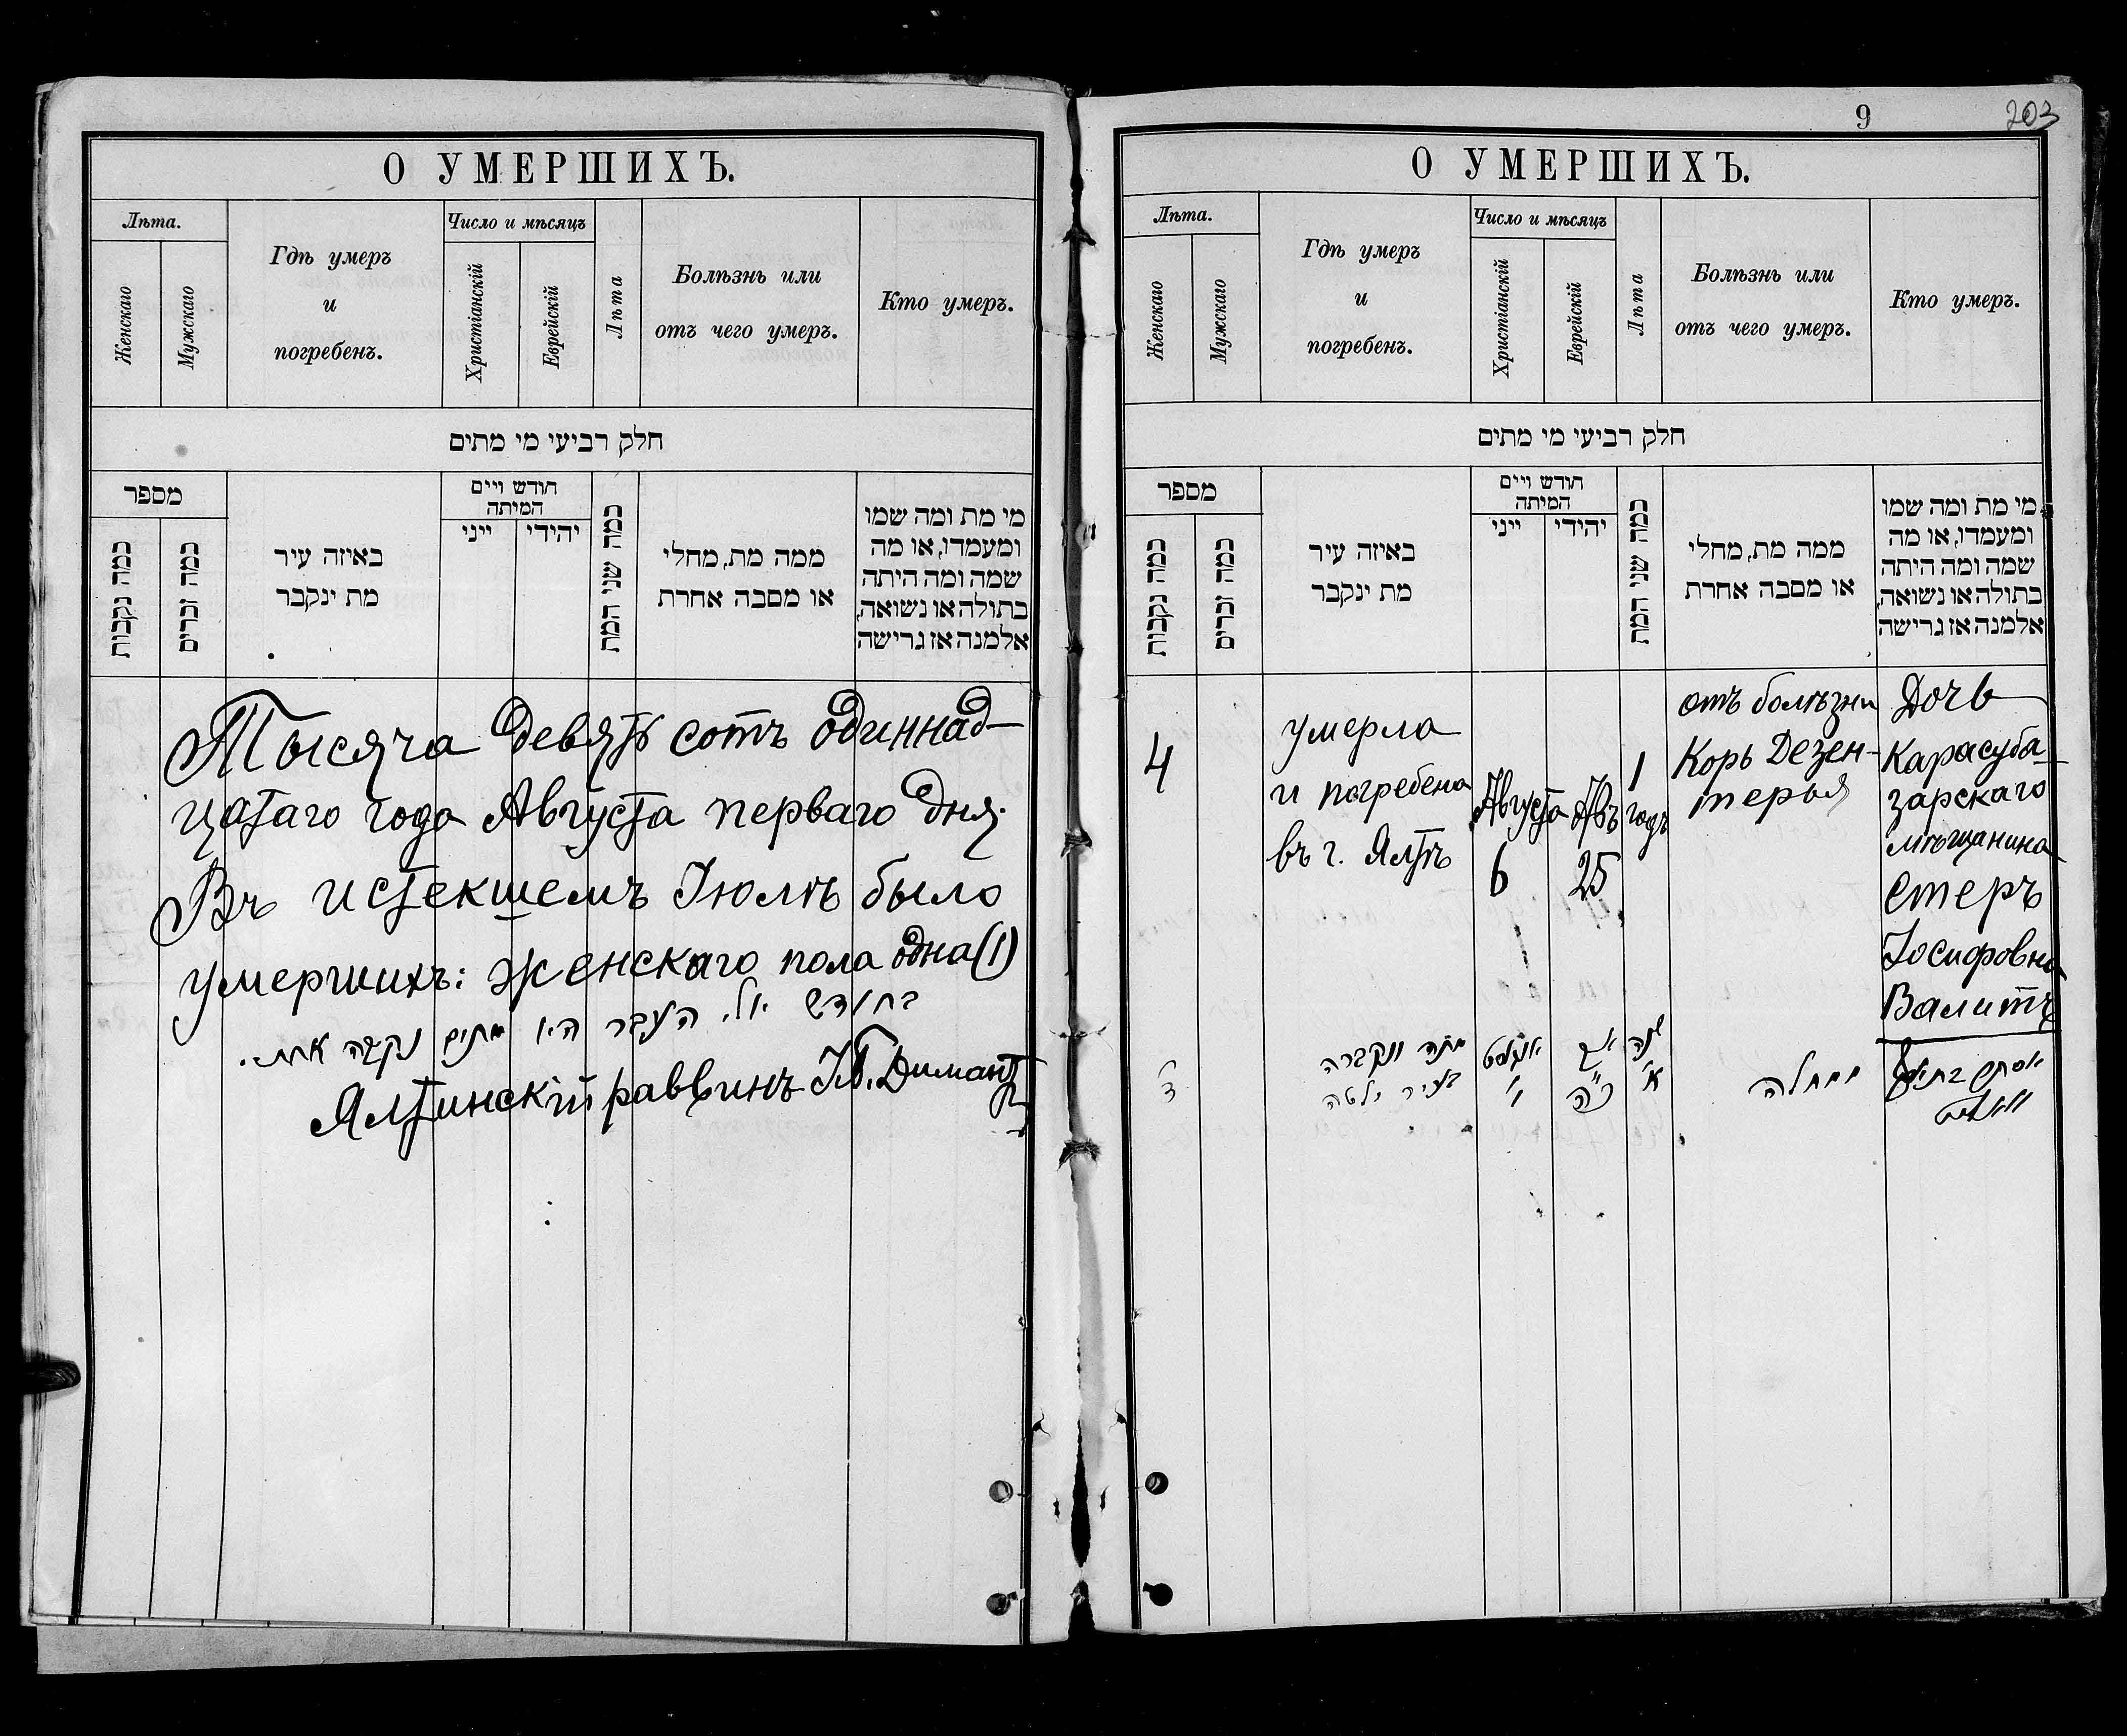 О УМЕРШИХЪ.
Лѣта.
Женскаго
Мужскаго
Гдѣ умеръ
и
погребенъ.
Число и мѣсяцъ
Христіанскій
Еврейскій
Лѣта
Болѣзнь или
отъ чего умеръ.
Кто умеръ.
חלק רביעי מי מתים
מספר
כמה נקבות
כמה זכרים
באיזה עיר
מת ינקבר
חודש ויים
המיתה
ייני
יהידי
כמה שני המת
ממה מת, מחלי
או מסבה אחרת
מי מת ומה שמו
ומעמדו, או מה
שמה ומה היתה
בתולה או נשואה,
אלמנה אז גרישה
Тысяча девять сотъ одиннад-
цатаго года Августа перваго дня.
Въ истекшемъ Іюлѣ было
умершихъ: женскаго пола одна (1)
בחודש יולי העבר היו מתים נקבה אחת.
Ялтинскій раввинъ Я.Б. Димантъ
9
203
О УМЕРШИХЪ.
Лѣта.
Женскаго
Мужскаго
Гдѣ умеръ
и
погребенъ.
Число и мѣсяцъ
Христіанскій
Еврейскій
Лѣта
Болѣзнь или
отъ чего умеръ.
Кто умеръ.
חלק רביעי מי מתים
מספר
כמה נקבות
כמה זכרים
באיזה עיר
מת ינקבר
חודש ויים
המיתה
ייני
יהידי
כמה שני המת
ממה מת, מחלי
או מסבה אחרת
מי מת ומה שמו
ומעמדו, או מה
שמה ומה היתה
בתולה או נשואה,
אלמנה אז גרישה
4
умерла
и погребена
въ г. Ялтѣ
Августа
6
Авъ
25
1
годъ
отъ болѣзни
Корь Дезен-
терья
Дочь
Карасуба-
зарскаго
мѣщанина
Естеръ
Іосифовна
Валитъ
ד
מתה ונקברה
בעיר ילטה
אוגוסט
ו'
אב
כ"ה
שנה
א'
ממחלה
אסתר בת יוסף
וואליט